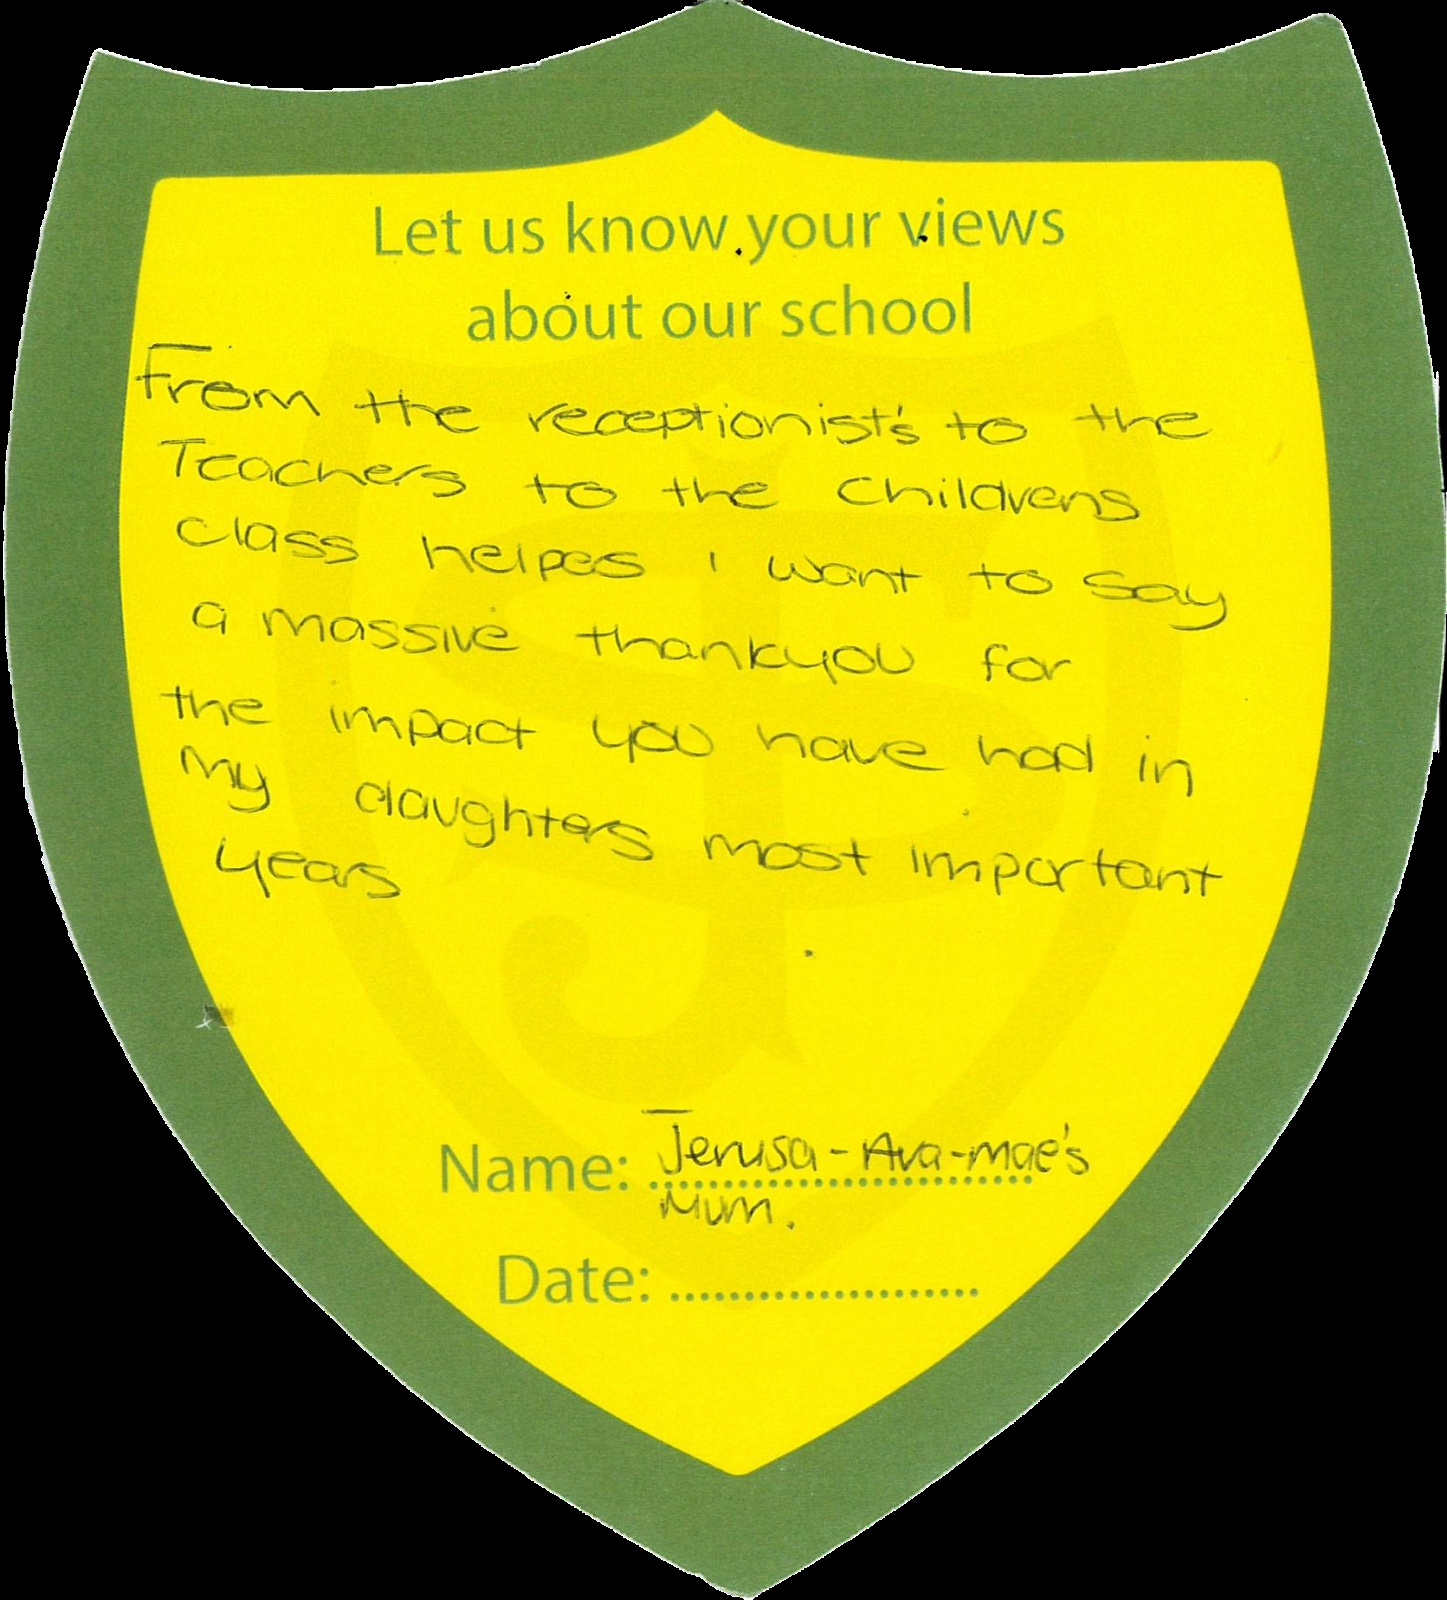 Let us know your views
about our school
From the receptionist's to the
Teachers to the Childrens
class helpes i want to say
a massive thankyou for
the impact you have had in
My daughters most important
years
Name: Jerusa-Ava-mae's
Mum.
Date: .....................